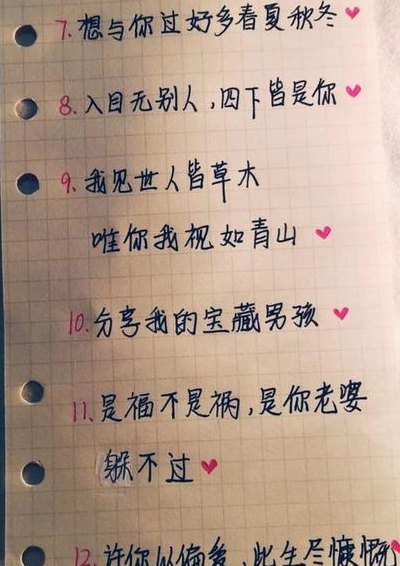 7. 想与你过好多春夏秋冬
8. 入目无别人，四下皆是你
9. 我见世人皆草木
唯你我视如青山
10. 分享我的宝藏男孩
11. 是福不是祸，是你老婆
躲不过
12. 许你以偏爱，此生尽慷慨